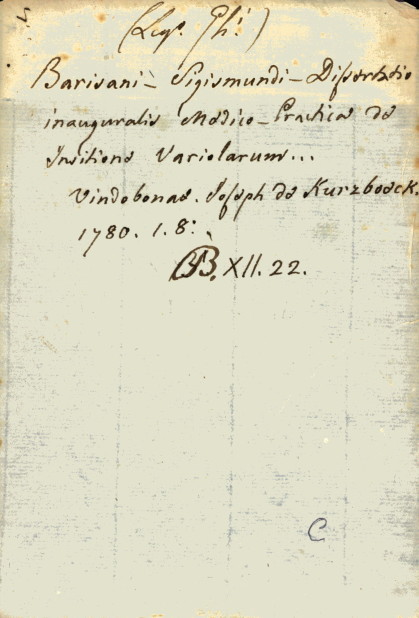 (Leg. Gh.)
Barisani - Sigismundi - Dissertatio
inauguralis Medico - Practica de
Insitione Variolarum...
Vindobonae. Joseph de Kurzboeck.
1780. 1. 8:
B. XII. 22.
C